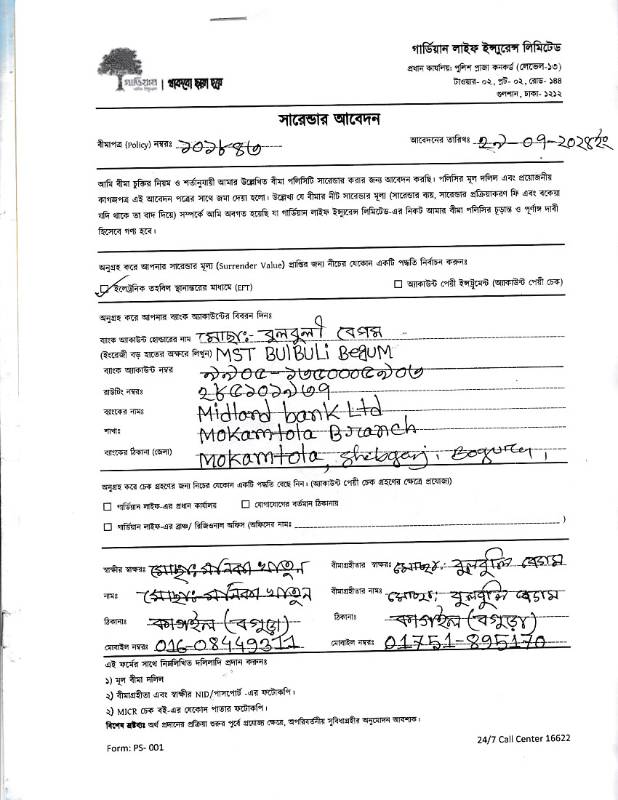 গার্ডিয়ান লাইফ ইন্স্যুরেন্স লিমিটেড
প্রধান কার্যালয়: পুলিশ প্লাজা কনকর্ড (লেভেল-১৩)
টাওয়ার- ০২, প্লট- ০২, রোড- ১৪৪
গুলশান, ঢাকা- ১২১২
গার্ডিয়ান
সারেন্ডার আবেদন
বীমাপত্র (Policy) নম্বরঃ
আবেদনের তারিখঃ
আমি বীমা চুক্তির নিয়ম ও শর্তানুযায়ী আমার উল্লেখিত বীমা পলিসিটি সারেন্ডার করার জন্য আবেদন করছি। পলিসির মূল দলিল এবং প্রয়োজনীয়
কাগজপত্র এই আবেদন পত্রের সাথে জমা দেয়া হলো। উল্লেখ্য যে বীমার নীট সারেন্ডার মূল্য (সারেন্ডার ব্যয়, সারেন্ডার প্রক্রিয়াকরণ ফি এবং বকেয়া
যদি থাকে তা বাদ দিয়ে) সম্পর্কে আমি অবগত হয়েছি যা গার্ডিয়ান লাইফ ইন্স্যুরেন্স লিমিটেড-এর নিকট আমার বীমা পলিসির চূড়ান্ত ও পূর্ণাঙ্গ দাবী
হিসেবে গণ্য হবে।
অনুগ্রহ করে আপনার সারেন্ডার মূল্য (Surrender Value) প্রাপ্তির জন্য নীচের যেকোন একটি পদ্ধতি নির্বাচন করুনঃ
ইলেক্ট্রনিক তহবিল স্থানান্তরের মাধ্যমে (EFT) অ্যাকাউন্ট পেয়ী ইন্সট্রুমেন্ট (অ্যাকাউন্ট পেয়ী চেক)
অনুগ্রহ করে আপনার ব্যাংক অ্যাকাউন্টের বিবরন দিনঃ
ব্যাংক অ্যাকাউন্ট হোল্ডারের নাম মোছাঃ- বুলবুলী বেগম
(ইংরেজী বড় হাতের অক্ষরে লিখুন) MST BUlBULi BegUM
ব্যাংক অ্যাকাউন্ট নম্বর
রাউটিং নম্বরঃ
ব্যাংকের নামঃ Midland bank Ltd
শাখাঃ Mokamtola Branch
ব্যাংকের ঠিকানা (জেলা) Mokamtola, Shebganj, Bogura,
অনুগ্রহ করে চেক গ্রহণের জন্য নিচের যেকোন একটি পদ্ধতি বেছে নিন। (অ্যাকাউন্ট পেয়ী চেক গ্রহণের ক্ষেত্রে প্রযোজ্য)
গার্ডিয়ান লাইফ-এর প্রধান কার্যালয় যোগাযোগের বর্তমান ঠিকানায়
গার্ডিয়ান লাইফ-এর ব্রাঞ্চ/ রিজিওনাল অফিস (অফিসের নামঃ )
স্বাক্ষীর স্বাক্ষরঃ মোছাঃ মনিকা খাতুন বীমাগ্রহীতার স্বাক্ষরঃ মোছাঃ বুলবুলি বেগম
নামঃ মোছাঃ মনিকা খাতুন বীমাগ্রহীতার নামঃ মোছাঃ বুলবুলি বেগম
ঠিকানাঃ কাগইল (বগুড়া) ঠিকানাঃ কাগইল (বগুড়া)
মোবাইল নম্বরঃ 016-08449311 মোবাইল নম্বরঃ 01751-895170
এই ফর্মের সাথে নিম্নলিখিত দলিলাদি প্রদান করুনঃ
১) মূল বীমা দলিল
২) বীমাগ্রহীতা এবং স্বাক্ষীর NID/পাসপোর্ট -এর ফটোকপি।
২) MICR চেক বই-এর যেকোন পাতার ফটোকপি।
বিশেষ দ্রষ্টব্যঃ অর্থ প্রদানের প্রক্রিয়া শুরুর পূর্বে প্রযোজ্য ক্ষেত্রে, অপরিবর্তনীয় সুবিধাগ্রহীর অনুমোদন আবশ্যক।
Form: PS- 001
24/7 Call Center 16622